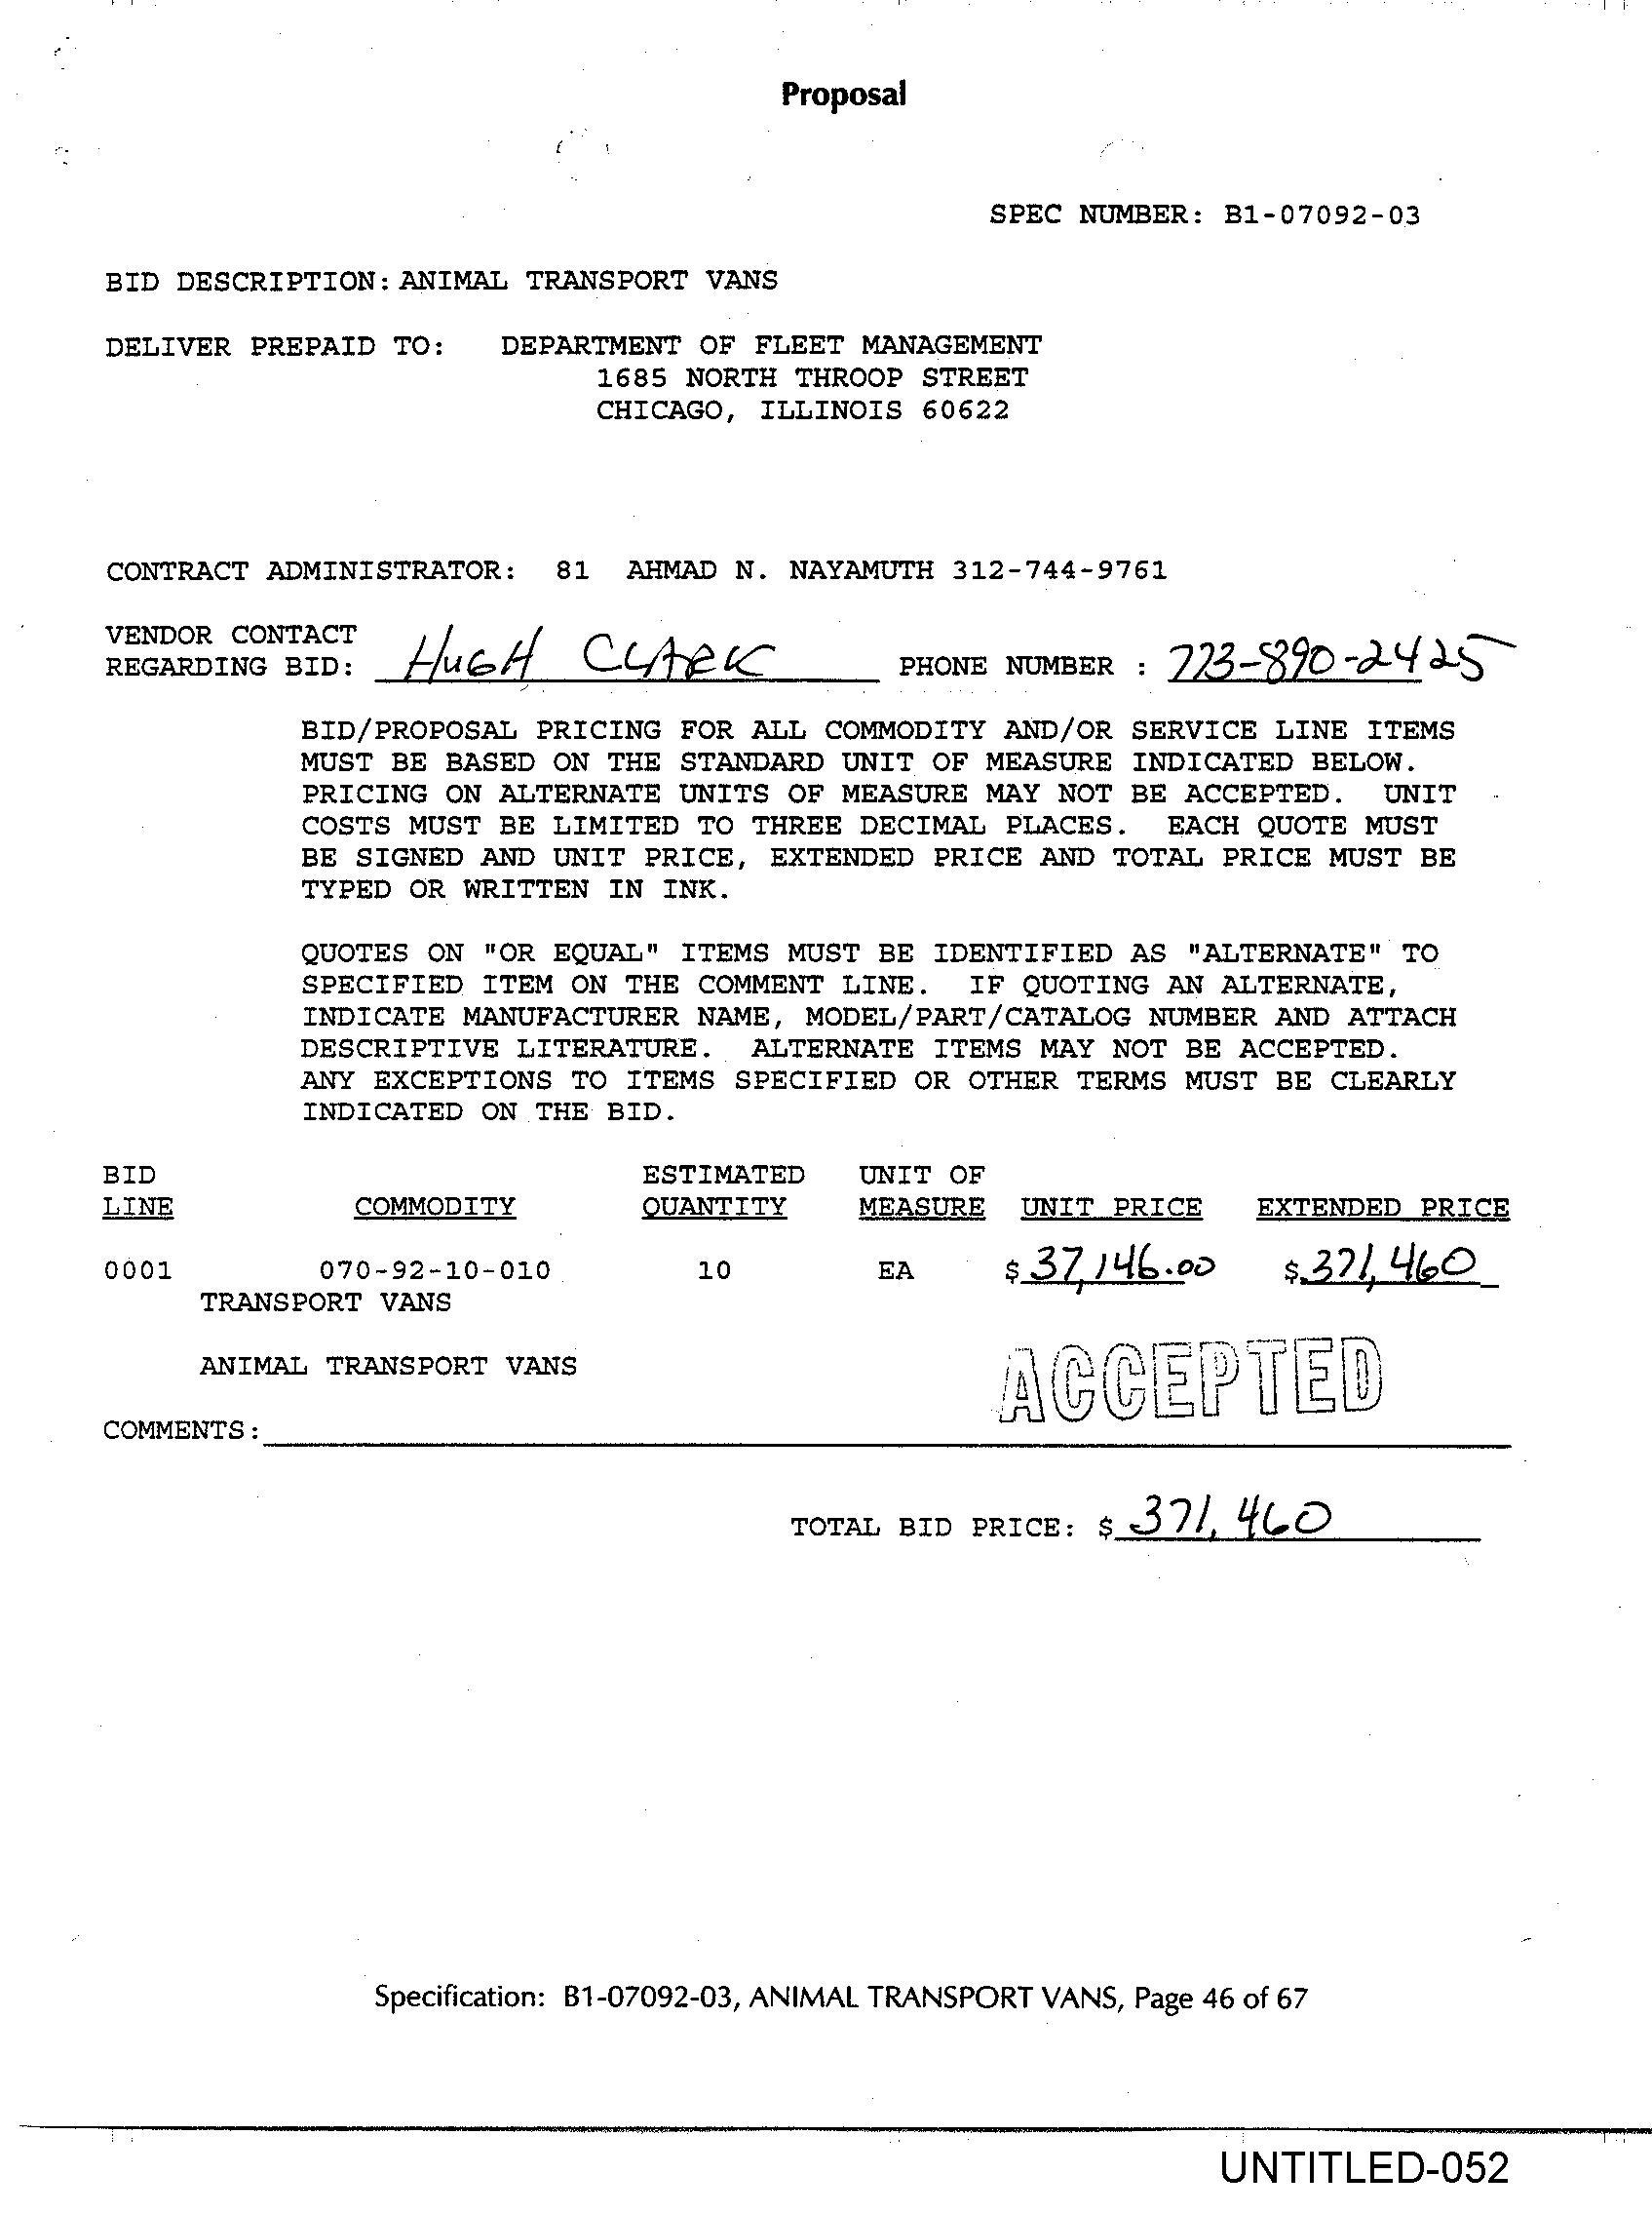 Proposal
SPEC NUMBER: B1-07092-03
BID DESCRIPTION: ANIMAL TRANSPORT VANS
DELIVER PREPAID TO: DEPARTMENT OF FLEET MANAGEMENT
1685 NORTH THROOP STREET
CHICAGO, ILLINOIS 60622
CONTRACT ADMINISTRATOR: 81 AHMAD N. NAYAMUTH 312-744-9761
VENDOR CONTACT
REGARDING BID: HUGH CLARK PHONE NUMBER : 773-890-2425
BID/PROPOSAL PRICING FOR ALL COMMODITY AND/OR SERVICE LINE ITEMS
MUST BE BASED ON THE STANDARD UNIT OF MEASURE INDICATED BELOW.
PRICING ON ALTERNATE UNITS OF MEASURE MAY NOT BE ACCEPTED. UNIT
COSTS MUST BE LIMITED TO THREE DECIMAL PLACES. EACH QUOTE MUST
BE SIGNED AND UNIT PRICE, EXTENDED PRICE AND TOTAL PRICE MUST BE
TYPED OR WRITTEN IN INK.
QUOTES ON "OR EQUAL" ITEMS MUST BE IDENTIFIED AS "ALTERNATE" TO
SPECIFIED ITEM ON THE COMMENT LINE. IF QUOTING AN ALTERNATE,
INDICATE MANUFACTURER NAME, MODEL/PART/CATALOG NUMBER AND ATTACH
DESCRIPTIVE LITERATURE. ALTERNATE ITEMS MAY NOT BE ACCEPTED.
ANY EXCEPTIONS TO ITEMS SPECIFIED OR OTHER TERMS MUST BE CLEARLY
INDICATED ON THE BID.
BID ESTIMATED UNIT OF
LINE COMMODITY QUANTITY MEASURE UNIT PRICE EXTENDED PRICE
0001 070-92-10-010 10 EA $ 37,146.00 $ 371,460
TRANSPORT VANS
ANIMAL TRANSPORT VANS
ACCEPTED
COMMENTS:
TOTAL BID PRICE: $ 371,460
Specification: B1-07092-03, ANIMAL TRANSPORT VANS, Page 46 of 67
UNTITLED-052